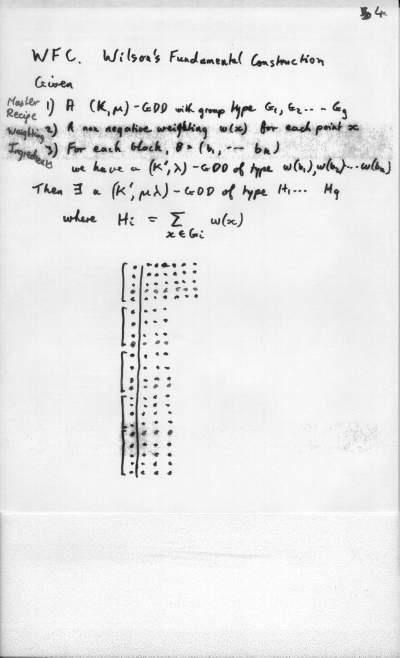 4
WFC. Wilson's Fundamental Construction
Given
Master Recipe 1) A (K,μ)-GDD with group type G₁, G₂ ... Gg
Weighting 2) A non negative weighting w(x) for each point x
Ingredients 3) For each block, B = (b₁, ... bₖ)
we have a (K',λ)-GDD of type w(b₁), w(b₂) ... w(bₖ)
Then ∃ a (K', μλ)-GDD of type H₁ ... Hg
where Hᵢ = ∑ w(x)
x∈Gᵢ